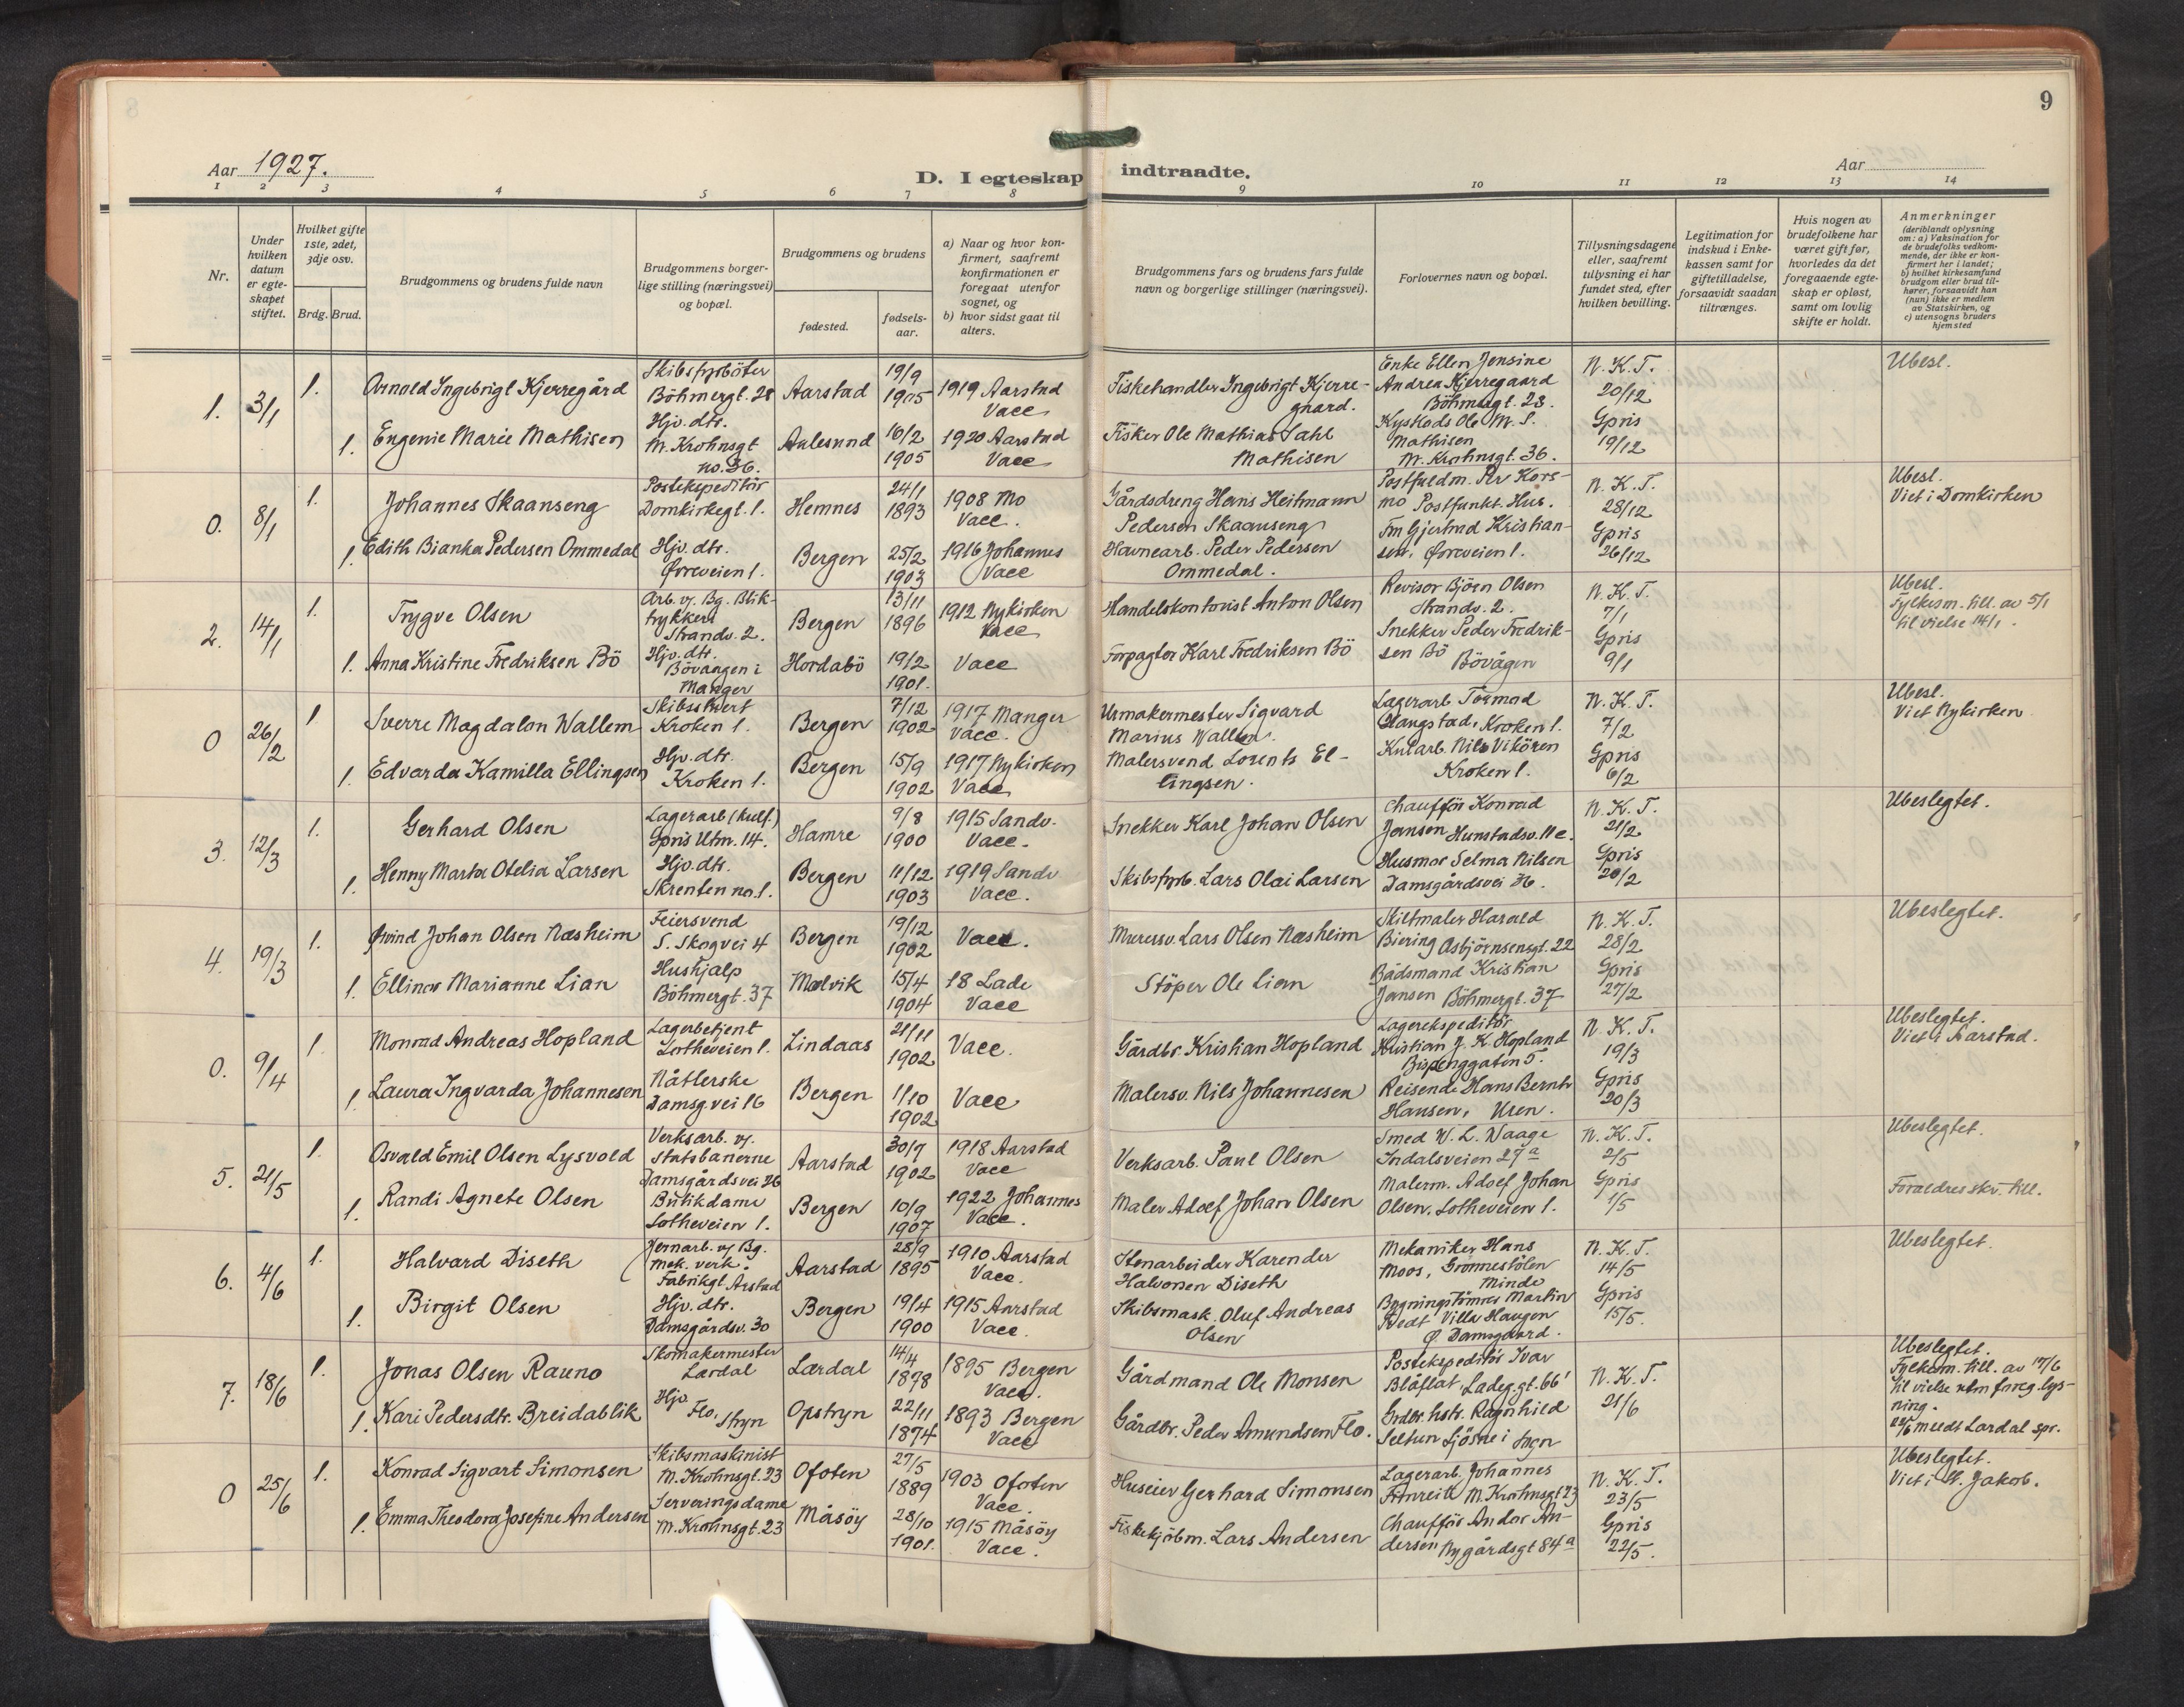 9
Aar 1927.
D. I egteskap indtraadte.
Aar
1 2 3 4 5 6 7 8 9 10 11 12 13 14
Nr.
Under hvilken datum er egteskapet stiftet.
Hvilket gifte 1ste, 2det, 3dje osv.
Brdg. Brud.
Brudgommens og brudens fulde navn
Brudgommens borgerlige stilling (næringsvei) og bopæl.
Brudgommens og brudens
fødested.
fødselsaar.
a) Naar og hvor konfirmert, saafremt konfirmationen er foregaat utenfor sognet, og
b) hvor sidst gaat til alters.
Brudgommens fars og brudens fars fulde navn og borgerlige stillinger (næringsvei).
Forlovernes navn og bopæl.
Tillysningsdagene eller, saafremt tillysning ei har fundet sted, efter hvilken bevilling.
Legitimation for indskud i Enkekassen samt for giftetilladelse, forsaavidt saadan tiltrænges.
Hvis nogen av brudefolkene har været gift før, hvorledes da det foregaaende egteskap er opløst, samt om lovlig skifte er holdt.
Anmerkninger (deriblandt oplysning om: a) Vaksination for de brudefolks vedkommende, der ikke er konfirmert her i landet; b) hvilket kirkesamfund brudgom eller brud tilhører, forsaavidt han (hun) ikke er medlem av Statskirken, og c) utensogns bruders hjemsted
1. 3/1 1. Arnold Ingebrigt Kjerregård Skibsfyrböter Böhmergt. 28 Aarstad 19/9 1905 1919 Aarstad Vacc Fiskehandler Ingebrigt Kjerregaard. Enke Ellen Jensine Andrea Kjerregaard Böhmergt. 28. N. K. T. 20/12 Ubesl.
1. Eugenie Marie Mathisen Hjv. dtr. M. Krohnsgt no. 36. Aalesund 16/2 1905 1920 Aarstad Vacc Fisker Ole Mathias Dahl Mathisen Kyskods Ole M. S. Mathisen M. Krohnsgt. 36. Gpris 19/12
0. 8/1 1. Johannes Skaanseng Postekspeditör Domkirkegt. 1. Hemnes 24/1 1893 1908 Mo Vacc. Gårdsdreng Hans Heitmann Pedersen Skaanseng Postfuldm. Per Korsmo Postfunkt. Hus. N. K. T. 28/12 Ubesl. Viet i Domkirken
1. Edith Bianka Pedersen Ommedal Hjv. dtr. Øvreveien 1. Bergen 25/2 1903 1916 Johannes Vacc Havnearb. Peder Pedersen Ommedal. Fru Gjertrud Kristiansen, Øvreveien 1. Gpris 26/12
2. 14/1 1. Trygve Olsen Arb. v. Bg. Bliktrykkeri Strandv. 2. Bergen 13/11 1896 1912 Nykirken Vacc Handelskontorist Anton Olsen Revisor Björn Olsen Strandv. 2. N. K. T. 7/1 Ubesl. Fylkesm. till. av 5/1 til vielse 14/1.
1. Anna Kristine Fredriksen Bö Hjv. dtr. Bövaagen i Manger Hordabö 19/2 1901. Vacc Forpagter Karl Fredriksen Bö Snekker Peder Fredriksen Bö Bövågen Gpris 9/1
0 26/2 1 Sverre Magdalon Wallem Skibsstuert Kroken 1. Bergen 7/12 1902 1917 Manger Vacc. Urmakermester Sigvard Marius Wallem. Lagerarb Tormod Haugstad, Kroken 1. N. K. T. 7/2 Ubesl. Viet Nykirken
1. Edvarda Kamilla Ellingsen Hjv. dtr. Kroken 1. Bergen 15/9 1902 1917 Nykirken Vacc Malersvend Lorents Ellingsen. Kularb. Nils Vikören Kroken 1. Gpris 6/2
3. 12/3 1. Gerhard Olsen Lagerarb (kulf.) Gpris Utm. 14. Hamre 9/8 1900 1915 Sandv. Vacc. Snekker Karl Johan Olsen Chafför Konrad Jensen Hunstadsv. 11 c. N. K. T. 21/2 Ubeslegtet.
1. Henny Marta Otelia Larsen Hjv. dtr. Skrenten no. 1. Bergen 11/12 1903 1919 Sandv Vacc. Skibsfyrb. Lars Olai Larsen Husmor Selma Nilsen Damsgårdsvei 36. Gpris 20/2
4. 19/3 1. Øivind Johan Olsen Næsheim Feiersvend S. Skogvei 4 Bergen 19/12 1902 Vacc. Murersv. Lars Olsen Næsheim Skiltmaler Harald Biering Asbjörnsensgt. 22 N. K. T. 28/2 Ubeslegtet.
1. Ellinor Marianne Lian Hushjalp Böhmergt. 37 Malvik 15/4 1904 18 Lade Vacc Stöper Ole Lian Bådsmand Kristian Jensen Böhmergt. 37 Gpris 27/2
0. 9/4 1. Monrad Andreas Hopland Lagerbetjent Lotheveien 1. Lindaas 21/11 1902 Vacc. Gårdbr. Kristian Hopland Lagerekspeditör Kristian J. K. Hopland Bispenggaten 5. N. K. T. 19/3 Ubeslegtet. Viet i Aarstad.
1. Laura Ingvarda Johannesen Nåtlerske Damsg.vei 16 Bergen 1/10 1902 Vacc Malersv. Nils Johannesen Reisende Hans Bernh Hansen, Uren. Gpris 20/3
5. 21/5 1. Osvald Emil Olsen Lysvold Verksarb. v. Statsbanerne Damsgårdsvei 26 Aarstad 30/9 1902 1918 Aarstad Vacc Verksarb. Paul Olsen Smed W. L. Waage Indalsveien 27a N. K. T. 2/5 Ubeslegtet.
1. Randi Agnete Olsen Butikdame Lotheveien 1. Bergen 10/9 1907 1922 Johannes Vacc. Maler Adolf Johan Olsen Malerm. Adolf Johan Olsen, Lotheveien 1. Gpris 1/5 Foraldres skr. till.
6. 4/6 1. Halvard Diseth Jernarb. v. Bg. Mek. verk. Fabrikgt. Arstad Aarstad 28/9 1895 1910 Aarstad Vacc. Stenarbeider Karender Halvorsen Diseth Mekaniker Hans Moos, Grönnestölen Minde N. K. T. 14/5 Ubeslegtet.
1. Birgit Olsen Hjv. dtr. Damsgårdsv. 30 Bergen 19/4 1900 1915 Aarstad Vacc. Skibsmask. Oluf Andreas Olsen Bygningstömrer Martin Tvedt Villa Haugen Ø. Damsgaard. Gpris 15/5.
7. 18/6 1. Jonas Olsen Rauno Skomakermester Lærdal Lærdal 14/4 1878 1895 Bergen Vacc. Gårdmand Ole Monsen Postekspeditör Ivar Blåflat, Ladeg.gt. 66' N. K. T. 21/6 Ubeslegtet. Fylkesm. till. av 17/6 til vielse uten foreg. lysning. 22/6 meedt Lardal spr.
1. Kari Pedersdtr. Breidablik Hjv. Flo, Stryn Opstryn 22/11 1874 1893 Bergen Vacc Gårdbr. Peder Amundsen Flo. Grdbr. hstr. Ragnhild Seltun Ljösne i Sogn
0 25/6 1. Konrad Sigvart Simonsen Skibsmaskinist M. Krohnsgt. 23 Ofoten 27/5 1889 1903 Ofoten Vacc. Huseier Gerhard Simonsen Lagerarb. Johannes Fanreik M. Krohnsgt 23 N. K. T. 23/5 Ubeslegtet. Viet i St. Jakob.
1. Emma Theodora Josefine Andersen Serveringsdame M. Krohnsgt. 23 Måsöy 28/10 1901. 1915 Måsöy Vacc. Fiskekjöbm. Lars Andersen Chafför Andor Andersen Nygårdsgt 84a Gpris 22/5.